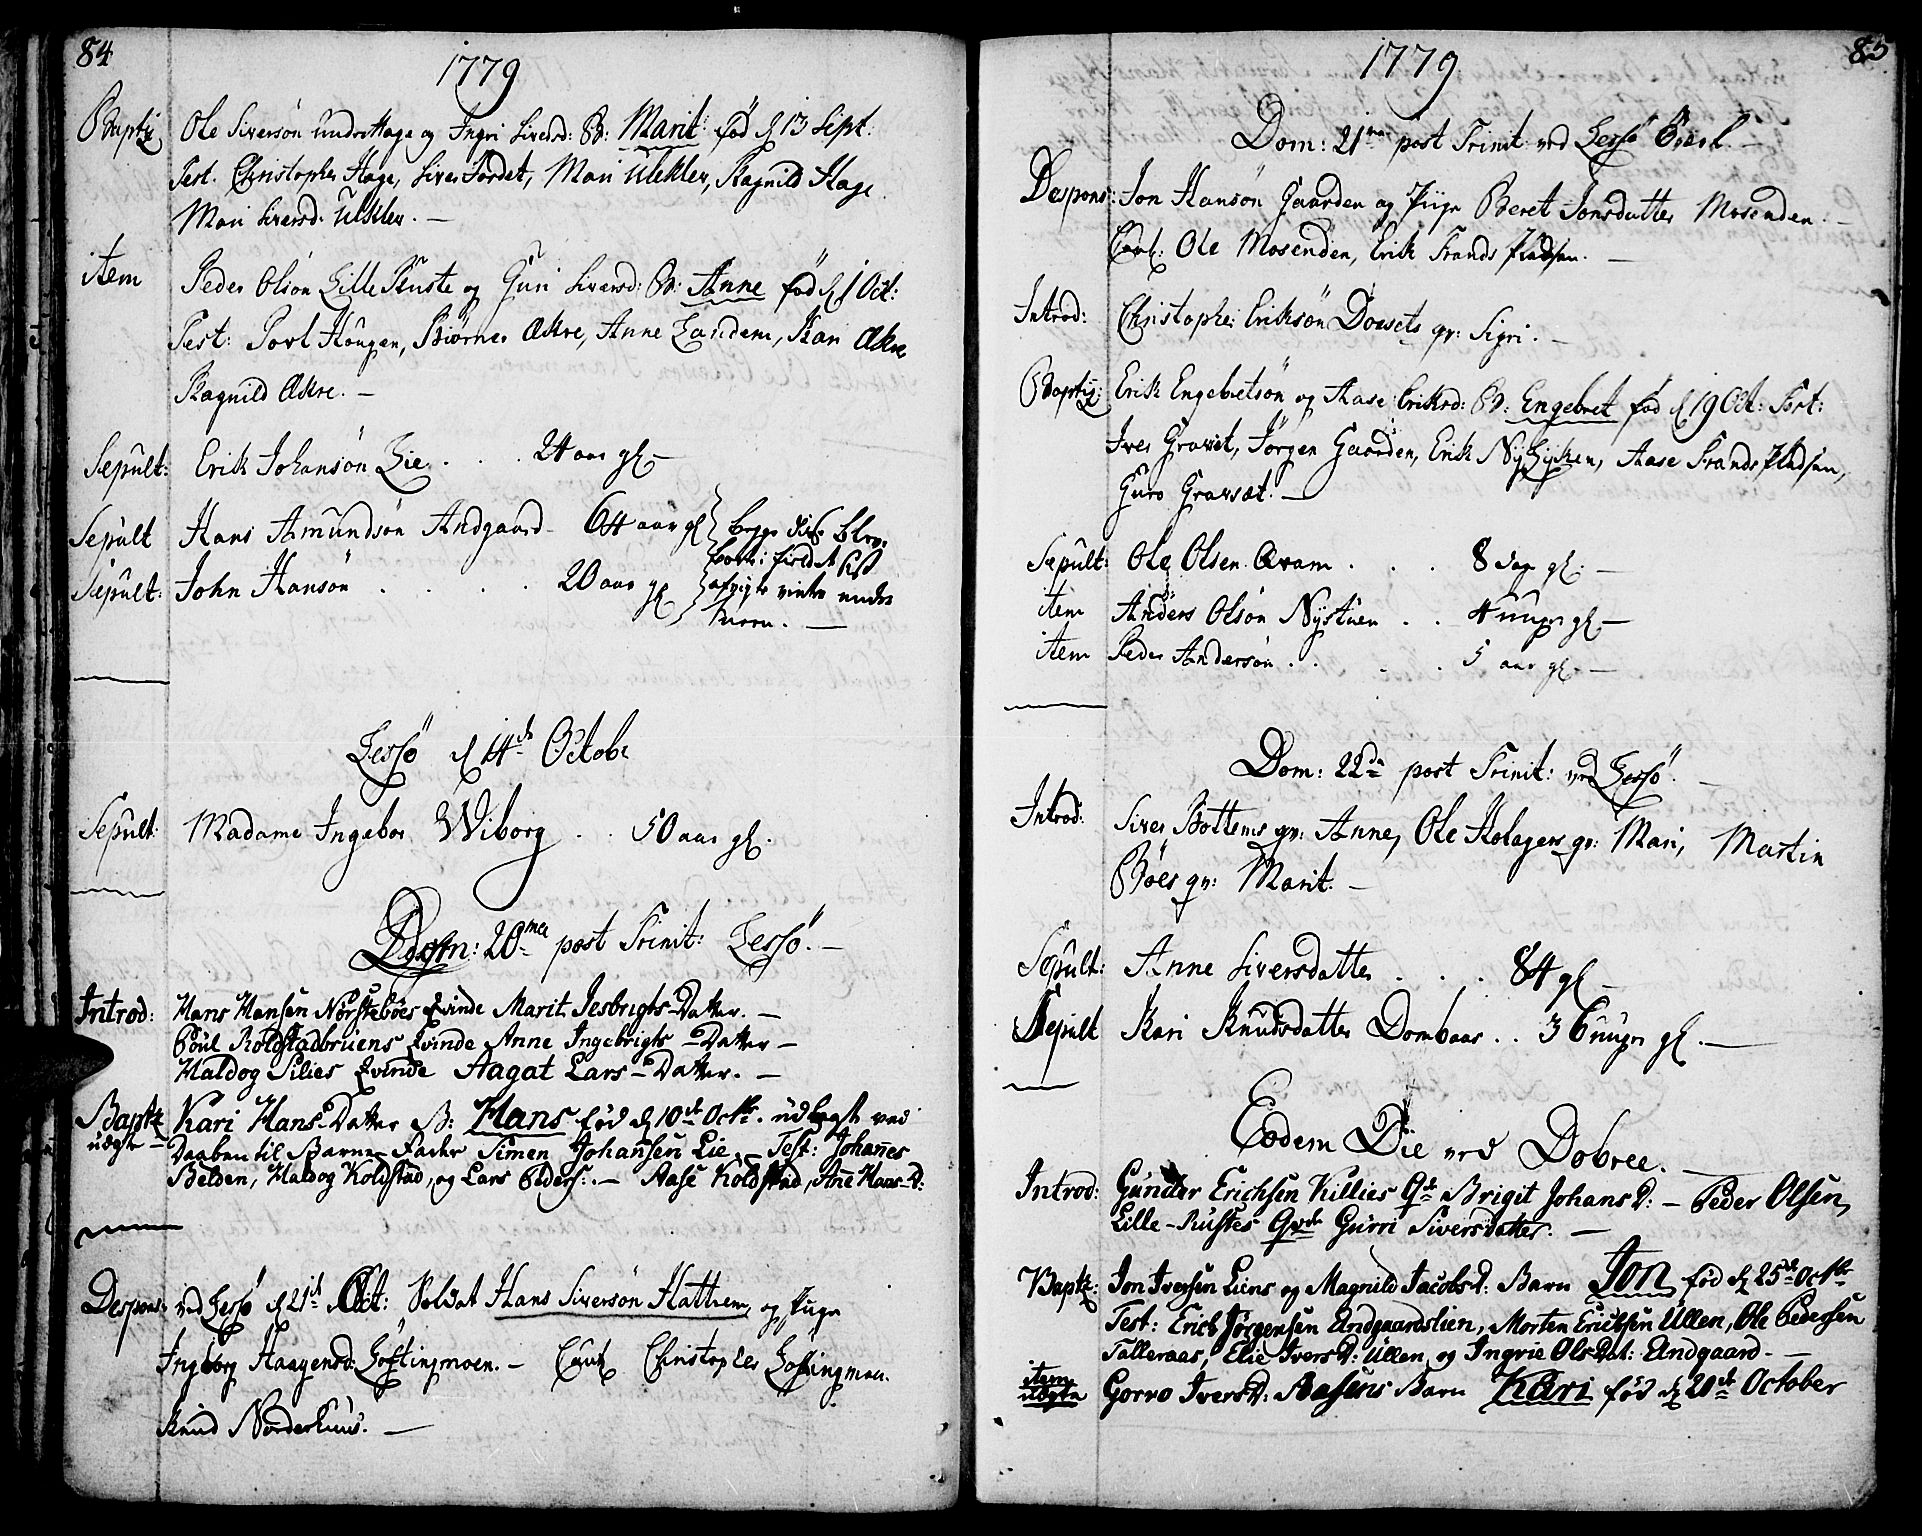 84
1779
Baptz Ole Siversön Undset Hage og Ingri Siversd: B: Marit fød d 13 Sept:
Test. Christopher Hage, Siver Jordet, Mari Ulekler, Ragnild Hage
Mari Siversd: Ulekler. —
item Peder Olsön Lille Ruste og Guri Siversd: B: Anne fød d 1 Oct:
Test: Povl Haugen, Biörner Ækre, Anne Landem, Kari Ækre
Ragnild Ækre. —
Sepult: Erik Johansön Lie . . . 24 aar gl —
Sepult Hans Amundsön Andgaard — 64 aar gl } begge disse blev
Sepult: John Hansön . . . . 20 aar gl } borte i fieldet sist
afvigte vinter under
Sneen. —
Lessö d 14de Octobr
Sepult: Madame Ingebor Wiborg . . 50 aar gl.
Dom: 20ma post Trinit: Lessö. —
Introd: Hans Hansen Nörsteböes Qvinde Marit Jesbrigts-Datter. —
Poul Kolstadbruens Qvinde Anne Ingebrigts-Datter —
Haldog Silies Qvinde Aagat Lars-Datter. —
Baptz Kari Hans-Datter B: Hans fød d 10de Octbr. udlagt ved
uægte — Daaben til Barne-Fader Simen Johansen Lie. — Test: Johannes
Belden, Haldog Koldstad, og Lars Peders:. — Aase Koldstad, Ane Hans-D:
Despons: ved Lessö d 21de Oct: Soldat Hans Siversön Hattrem og Pige
Ingborg Haagensd: Loftingmoen. — Caut Christopher Loftingmoen.
Knud Norderhuus. —
85
1779
Dom: 21ma post Trinit: ved Lessö Værk. —
Despons: Jon Hansön Gaarden og Pige Beret Jonsdatter Mosenden. —
Caut: Ole Mosenden, Erik Frands Pladsen. —
Introd: Christopher Eriksön Dovsets qv: Sigri. —
Baptiz: Erik Engebretsön og Aase Eriksd: B: Engebret fød d 19 Oct: Test:
Iver Gravset, Jörgen Gaarden, Erik NyLykken, Aase Frands Pladsen,
Guro Gravset. —
Sepult: Ole Olsen Qvam . . . 8 dage gl. —
item Anders Olsön Nystuen . . 4 uuger gl —
item Peder Andersön . . . . 5 aar gl. —
Dom: 22da post Trinit: ved Lessö. —
Introd: Siver Bottems qv: Anne, Ole Holagers qv: Mari, Martin
Böes qv: Marit. —
Sepult: Anne Siversdatter . . . 84 gl —
Sepult Kari Knudsdatter Dombaas . . 36 uuger gl. —
Eodem Die ved Dobree. —
Introd: Gunder Erichsen Killies Qde Brigit Johans D: — Peder Olsen
Lille-Rustes Qvde Gurri Siversdatter. —
Baptz: Jon Iversen Liens og Magnild Jacobs D: Barn Jon fød d 25de Octbr
Test: Erich Jörgensen Andgaardslien, Morten Erichsen Ullen, Ole Pedersen
Talleraas, Elie Ivers D: Ullen og Ingrie Ols Dat: Andgaard. —
item
uægte Gorro Ivers D: Aasens Barn Kari fød d 20de October